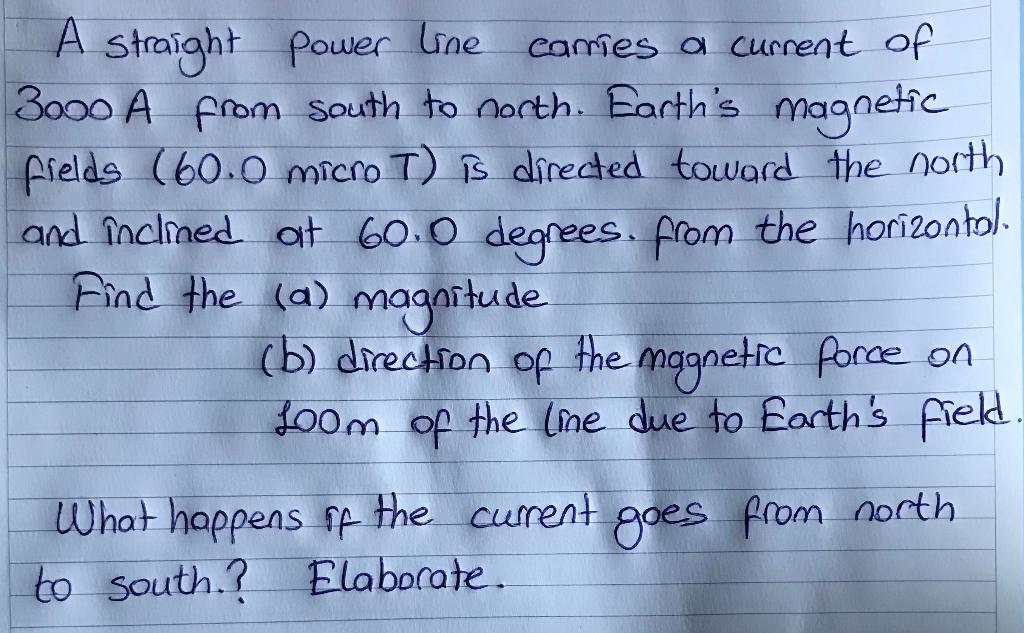 A straight power line carries a current of
3000 A from south to north. Earth's magnetic
fields (60.0 micro T) is directed toward the north
and inclined at 60.0 degrees. from the horizontal.
Find the (a) magnitude
(b) direction of the magnetic force on
100m of the line due to Earth's field.
What happens if the current goes from north
to south.? Elaborate.